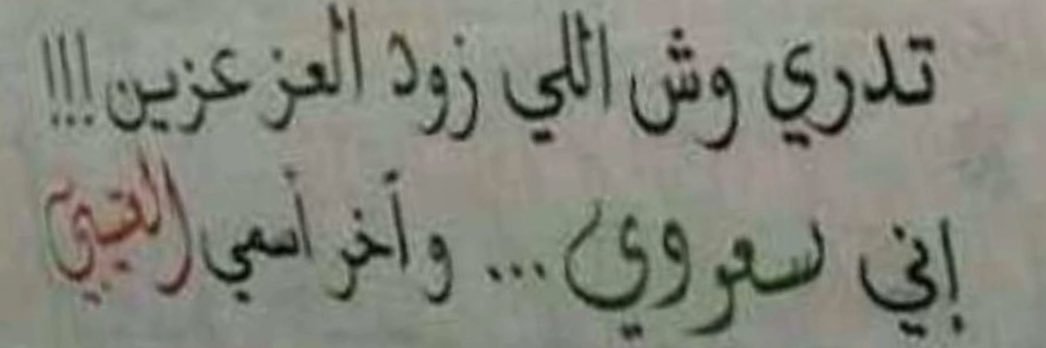 تدري وش اللي زود العز عزين !!!
إني سعودي ... وأخر أسمي (العتيبي)